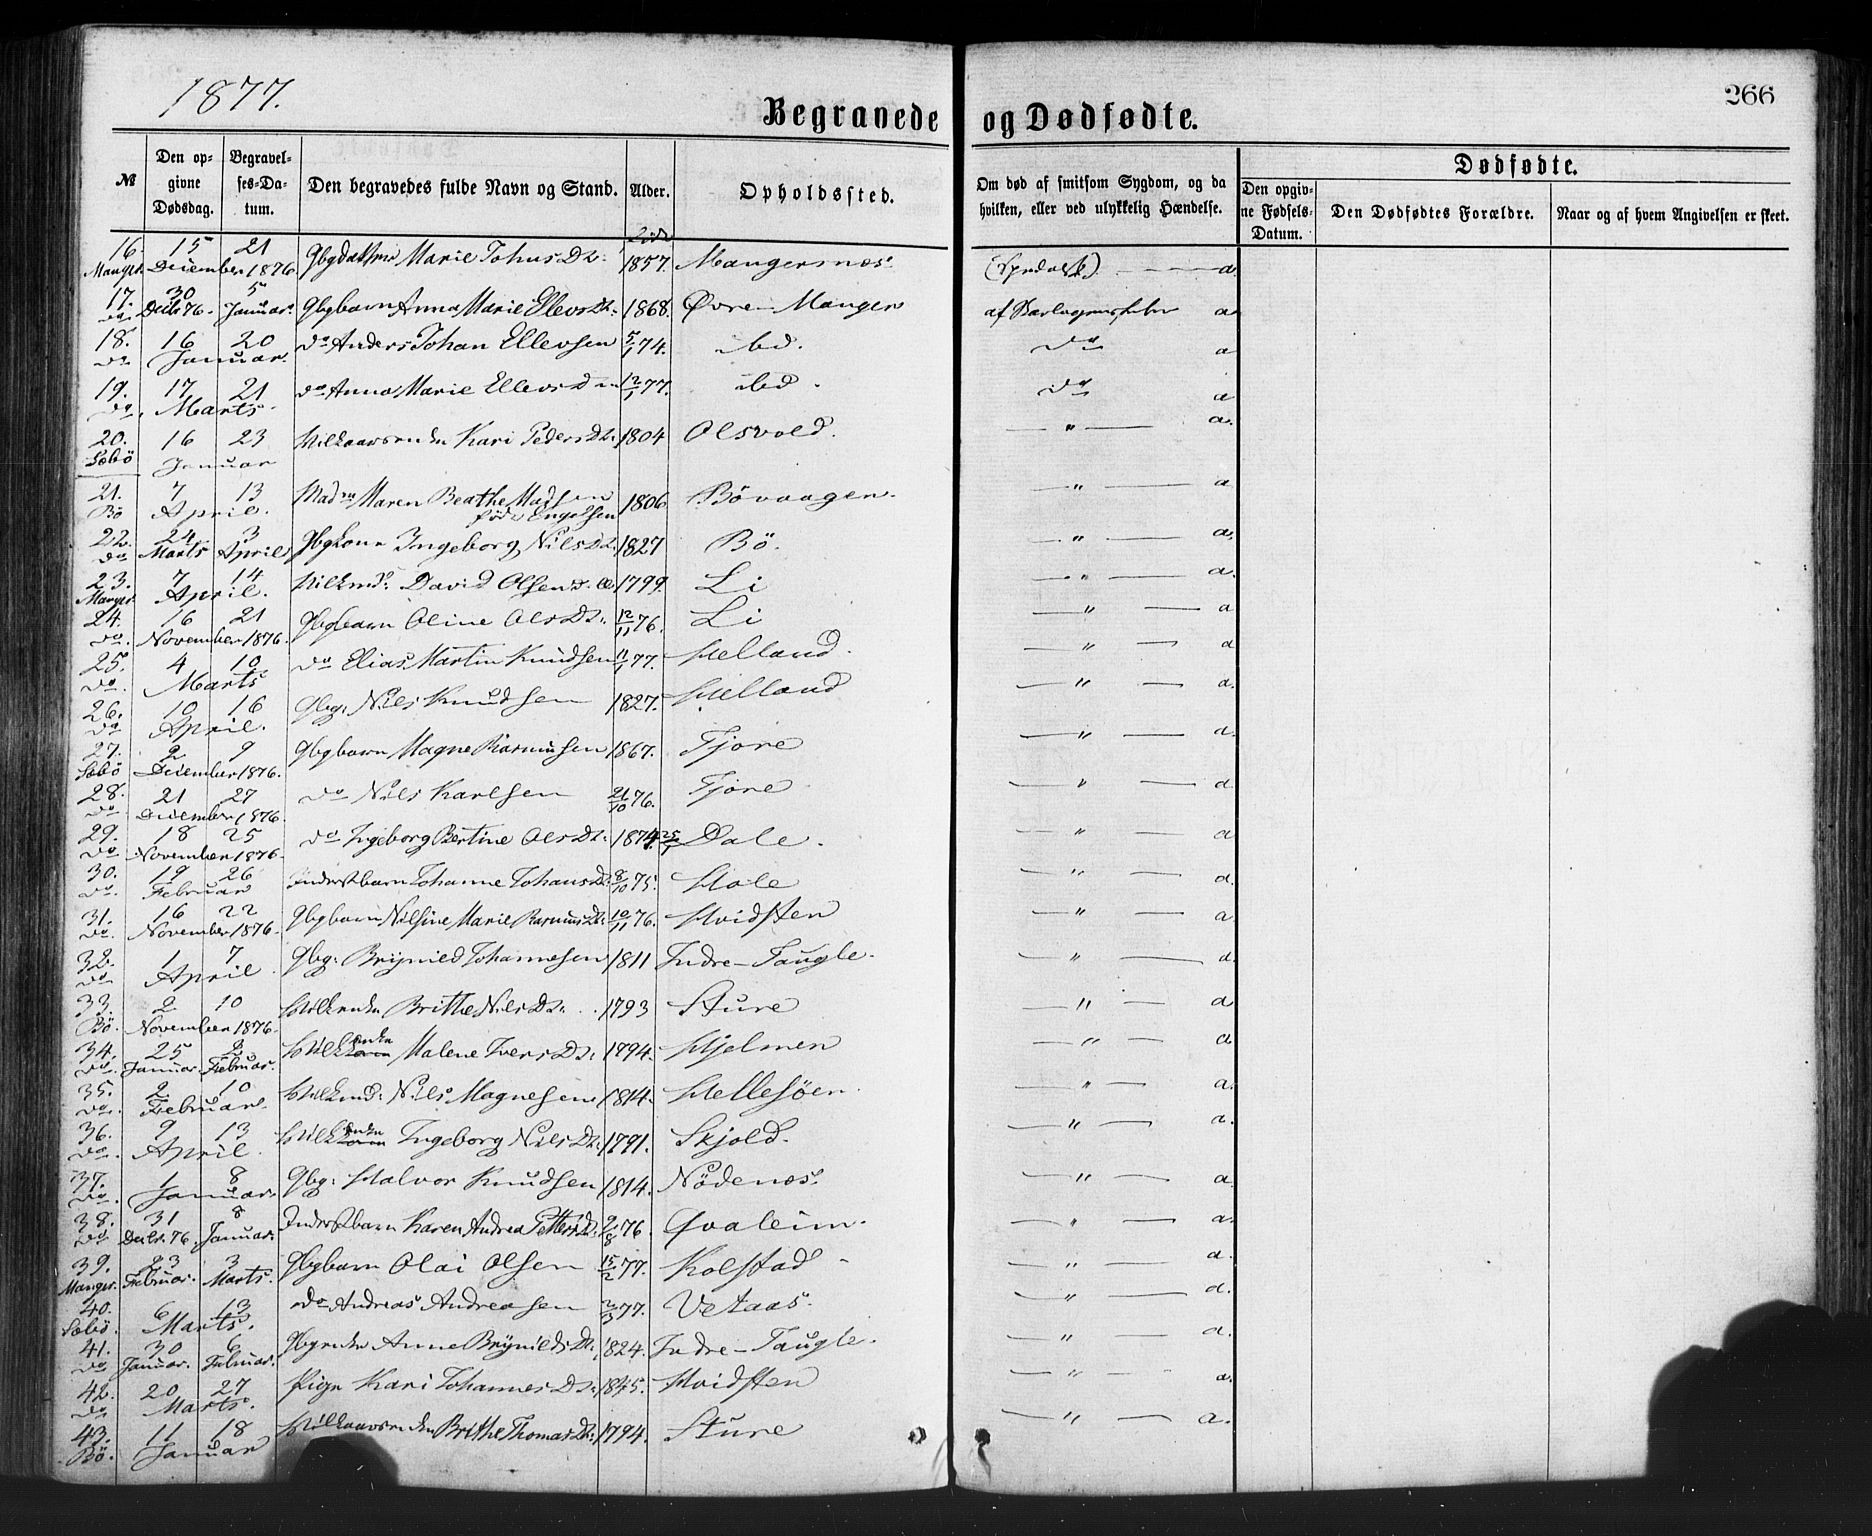 1877.
266
Begravede og Dødfødte.
№
Den opgivne Dødsdag.
Begravelses-Datum.
Den begravedes fulde Navn og Stand.
Alder.
Opholdssted.
Om død af smitsom Sygdom, og da hvilken, eller ved ulykkelig Hændelse.
Dødfødte.
Den opgivne Fødsels-Datum.
Den Dødfødtes Forældre.
Naar og af hvem Angivelsen er skeet.
16. Manger 15 21 December 1876 Marie Johns Dr: 1857. Mangersnæs. a
17. do. 30 Decbr 76. 5 Januar. Gbgbarn Anna Marie Ellevs Dr: 1868. Øvre-Manger a
18. do 16 20 Januar. do Anders Johan Ellevsen 5/1 74. ibd. do a
19. do. 17 21 Marts. do Anna Marie Ellevsd 12/1 77. ibd. do a
20. Sæbö 16 23 Januar Kari Peders Dr. 1804 Olsvold. — " — a.
21. Bö 7 13 April. Mad Maren Beathe Madsen föd Engelsen 1806 Bövaagen. — " — a
22. do 24 Marts 3 April Gbgkone Ingeborg Nils Dr. 1827 Bö. — " — a.
23. Manger 7 14 April. David Olsen 1799. Li — " — a.
24. do. 16 21 November 1876. Gbgbarn Oline Ols Dr. 12/11 76. Li — " — a
25. do. 4 10 Marts do Elias Martin Knudsen 11/1 77. Helland. — " — a
26. do 10 16 April. Gbg: Nils Knudsen 1827. Helland — " — a.
27. Sæbö 2 9 December 1876. Gbgbarn Magne Rasmusen 1867. Fjore — " — a.
28. do 21 27 December 1876. do Nils Karlsen 21/10 76. Fjore — " — a.
29. do 18 25 November 1876. do Ingeborg Bertine Ols Dr: 1874 25/1 Dale. — " — a
30. do. 19 26 Februar Inderstbarn Johanne Johans D. 8/10 75. Hole — " — a.
31. do. 16 22 November 1876. Gbgbarn Nilsine Marie Rasmus Dr: 10/11 76. Hvidsten — " — a.
32. do 1 7 April. Gbg: Brynild Johannesen 1811 Indre-Taugle. — " — a.
33. Bö. 2 10 November 1876. Brithe Nils Dr: 1793 Sture — " — a
34. do. 25 Januar. 2 Februar. Malene Ivers Dr: 1794. Hjelmen — " — a
35. do. 2 10 Februar. Nils Magnesen 1814. Hellesøen. — " — a.
36. do. 9 13 April. Ingeborg Nils Dr. 1791. Skjold. — " — a.
37. do. 1 8 Januar. Gbg: Halvor Knudsen 1814. Nödenæs. — " — a.
38. do 31 Decbr. 76. 8 Januar. Inderstbarn Karen Andrea Petters D. 2/8 76. Qvaleim. — " — a.
39. Manger. 23 Februar. 3 Marts. Gbgbarn Olai Olsen 15/2 77. Kolstad — " — a.
40. Sæbö. 6 13 Marts. do Andreas Andreasen 2/3 77. Vetaas. — " — a.
41. do 30 Januar. 6 Februar. Anne Brynilds Dr. 1824. Indre-Taugle. — " — a.
42. do 20 27 Marts. Pige Kari Johannes Dr. 1845. Hvidsten — " — a.
43. Bö. 11 18 Januar Brithe Thomas Dr: 1794. Sture — " — a.